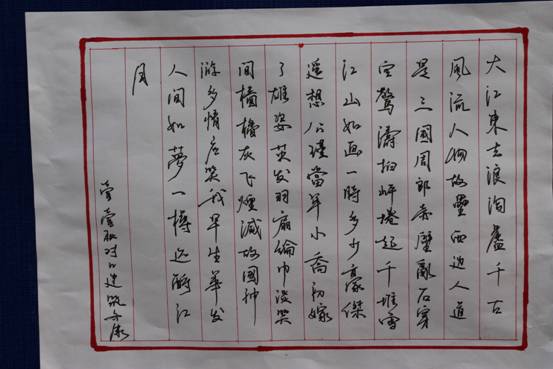 大江東去浪淘盡千古
風流人物故壘西边人道
是三國周郎赤壁亂石穿
空驚濤拍岸捲起千堆雪
江山如画一時多少豪傑
遥想公瑾當年小喬初嫁
了雄姿英发羽扇綸巾谈笑
间檣櫓灰飞煙滅故國神
游多情应笑我早生華发
人间如夢一樽还酹江
月